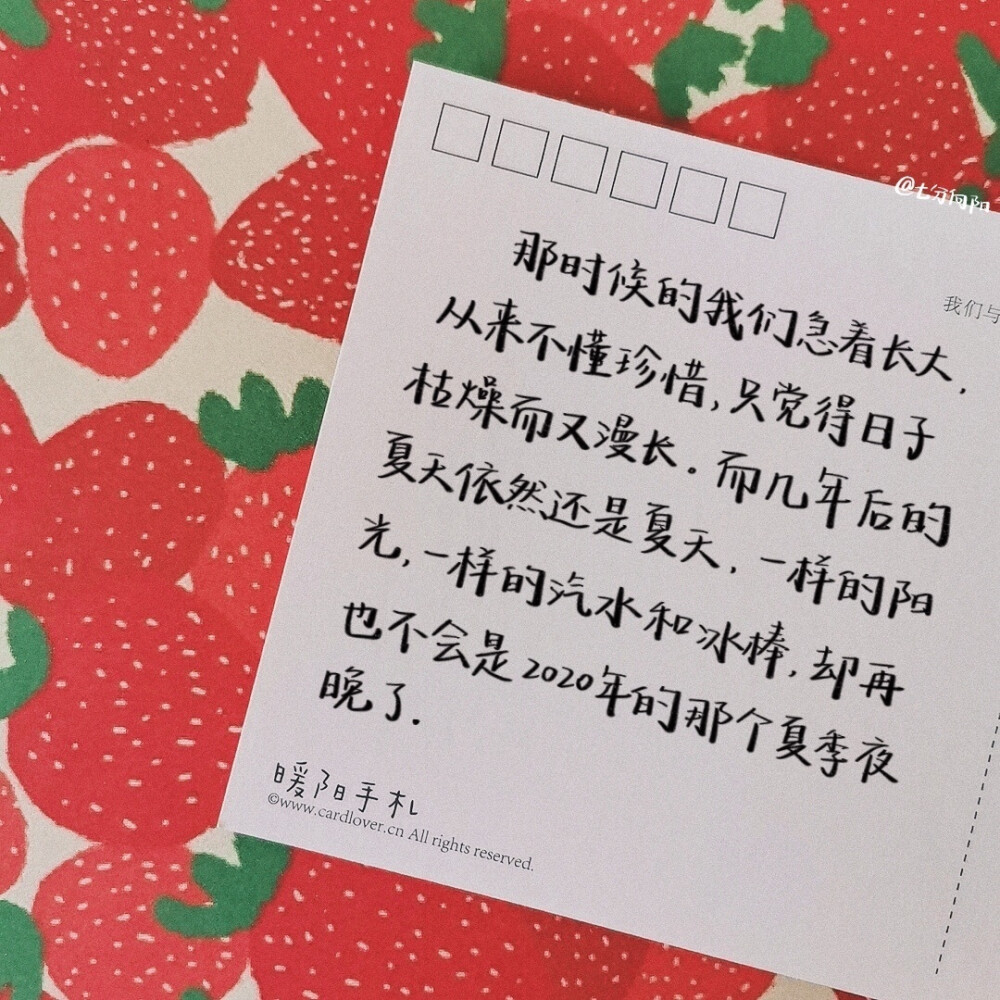 @七分向阳
我们与
那时候的我们急着长大,
从来不懂珍惜,只觉得日子
枯燥而又漫长。而几年后的
夏天依然还是夏天,一样的阳
光,一样的汽水和冰棒,却再
也不会是2020年的那个夏季夜
晚了.
暖阳手札
©www.cardlover.cn All rights reserved.